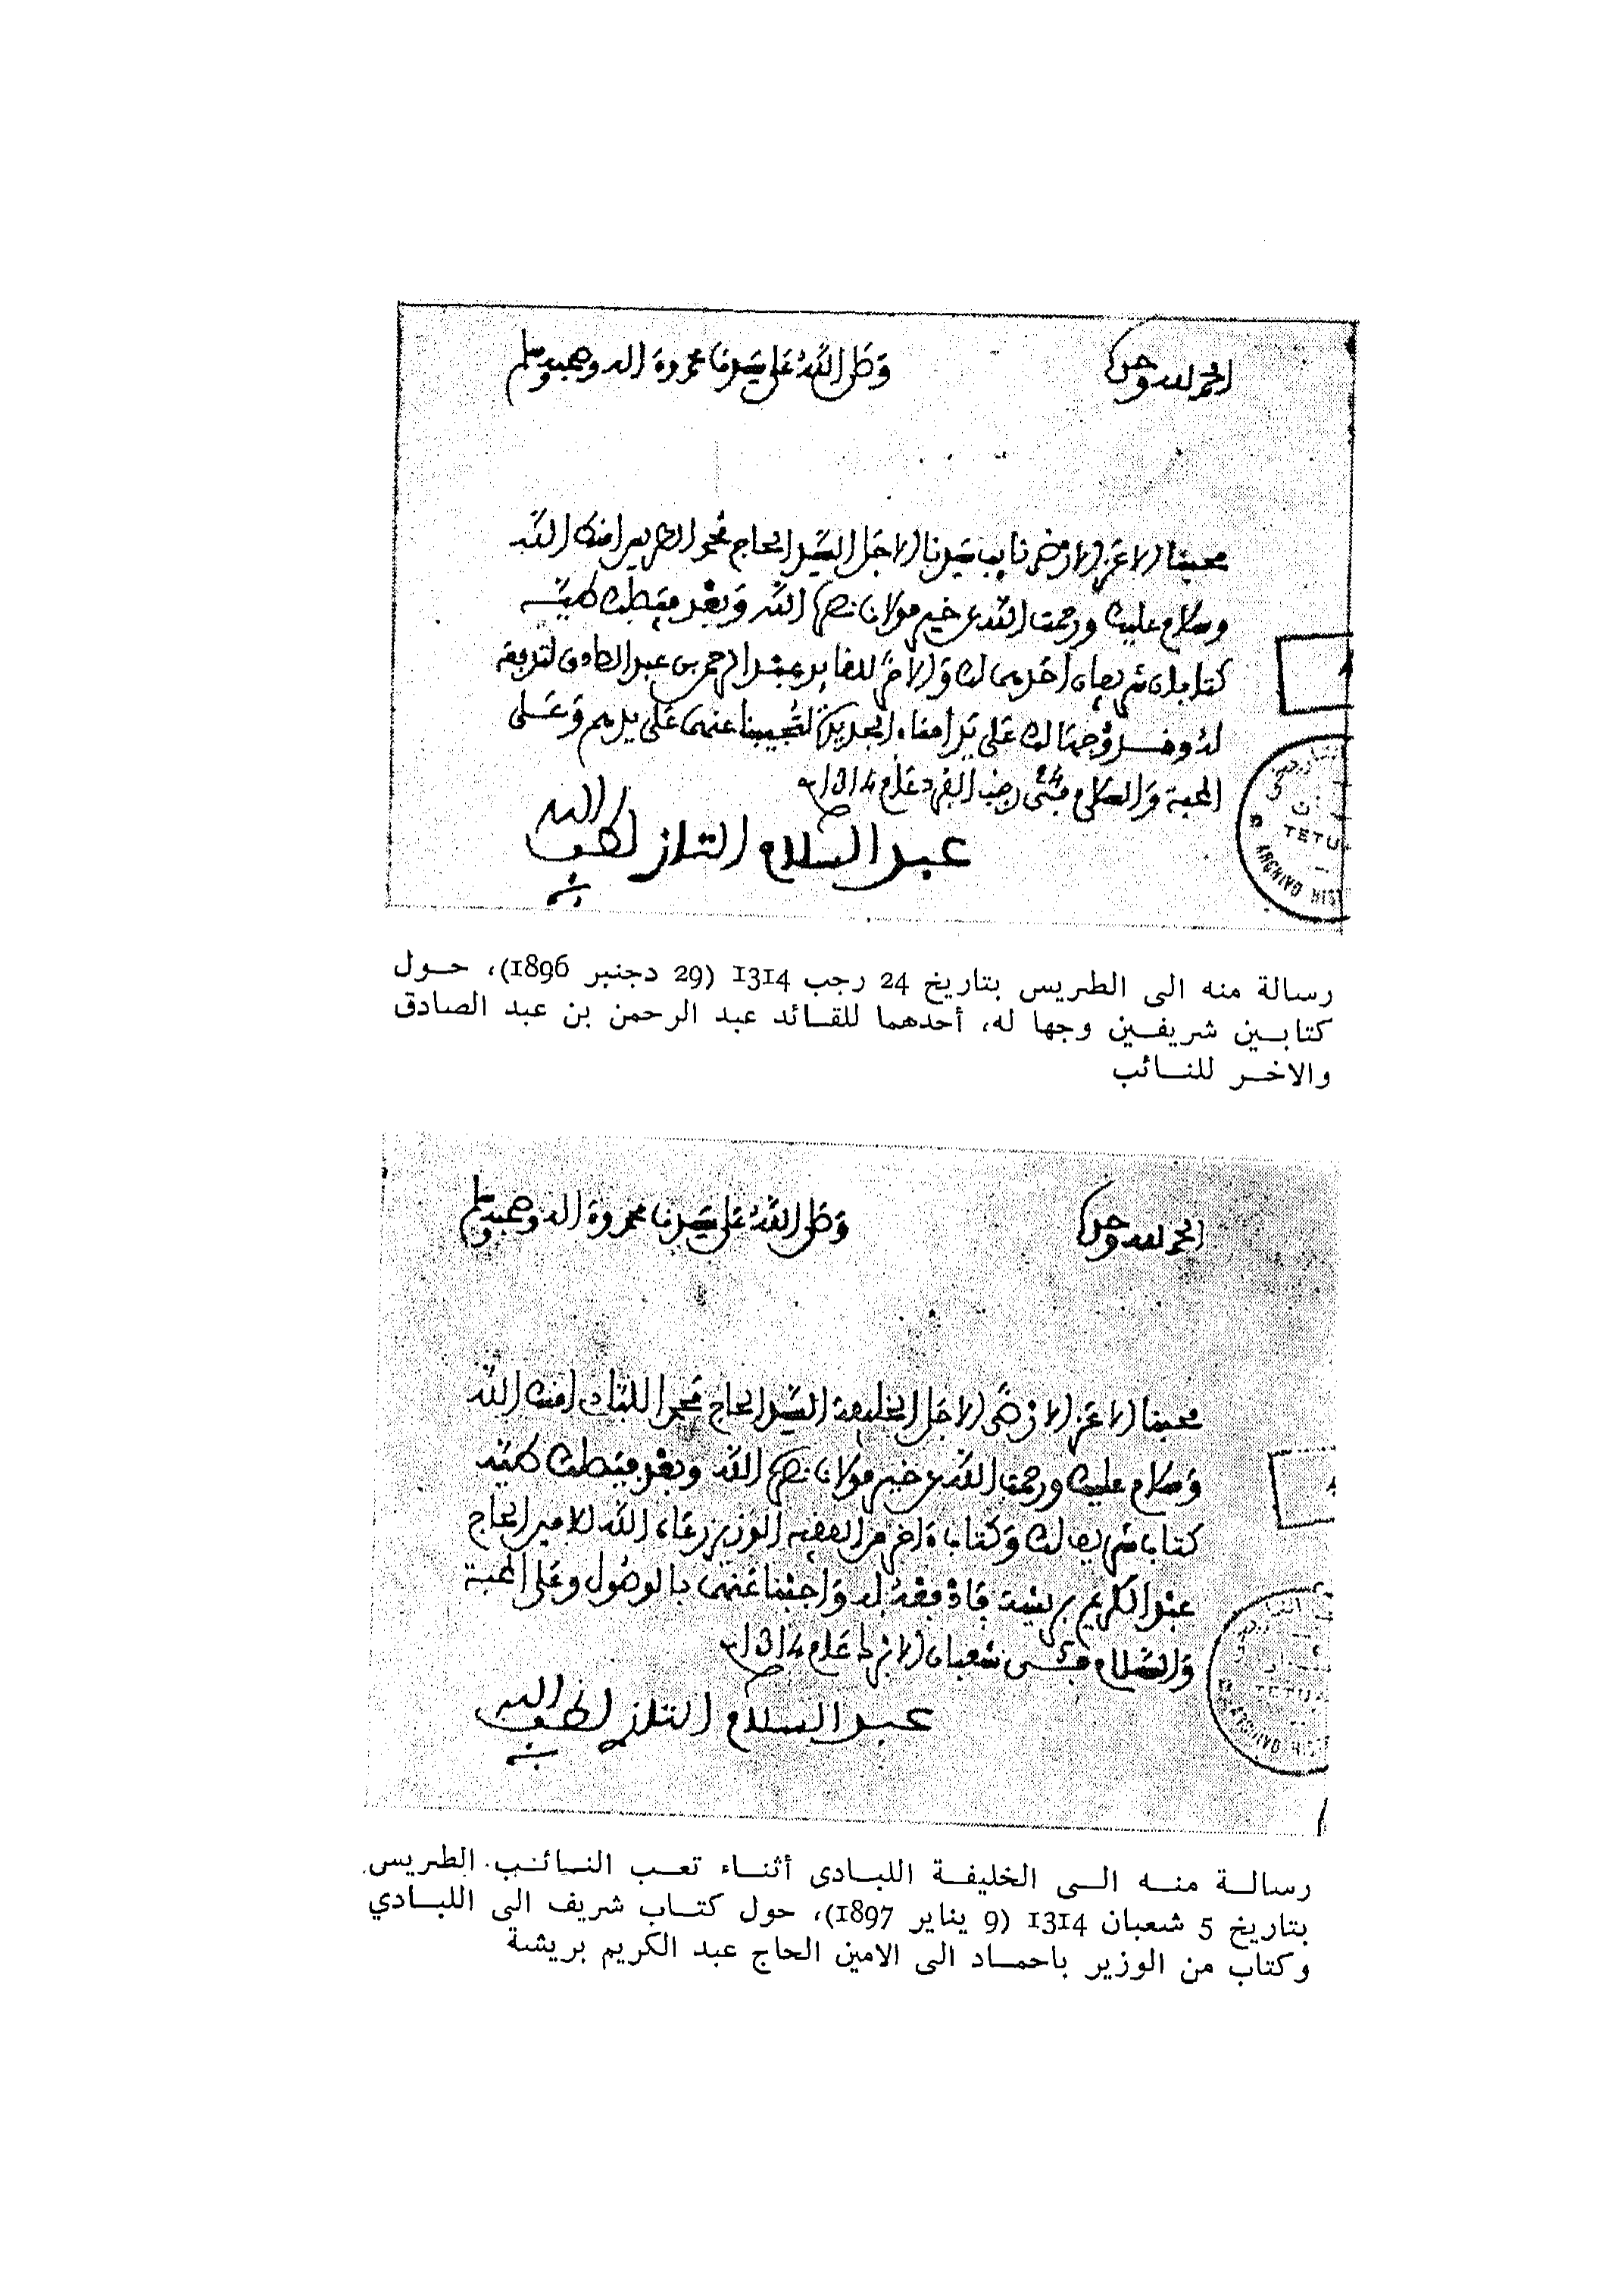 الحمد لله وحده
وصلى الله على سيدنا محمد وءاله وصحبه وسلم
محبنا الاعز الارضى نايب سيدنا الاجل السيد الحاج محمد الطريس امنك الله
وسلام عليك ورحمت الله عن خير مولانا نصره الله وبعد فيصلك طيه
كتابان شريفان احدهما لك والاخر للقايد عبد الرحمن بن عبد الصادق لتدفعه
له وقد وجهنا لك على يد امناء الجديدة لتجيبنا عنهما على يدهم وعلى
المحبة والسلام في 24 رجب الفرد عام 1314
عبد السلام التازي لطف الله به
TETU
ARCHIVO HIS
رسالة منه الى الطريس بتاريخ 24 رجب 1314 (29 دجنبر 1896)، حول
كتابين شريفين وجها له، أحدهما للقائد عبد الرحمن بن عبد الصادق
والاخر للنائب
الحمد لله وحده
وصلى الله على سيدنا محمد وءاله وصحبه وسلم
محبنا الاعز الارضى الاجل الخليفة السيد الحاج محمد اللبادي امنك الله
وسلام عليك ورحمت الله عن خير مولانا نصره الله وبعد فيصلك طيه
كتاب شريف لك وكتاب ءاخر من الفقيه الوزير رعاه الله للامين الحاج
عبد الكريم بريشة فادفعه له واجبنا عنهما بالوصول وعلى المحبة
والسلام في 5 شعبان الابرك عام 1314
عبد السلام التازي لطف الله به
TETUA
ARCHIVO HIS
رسالة منه الى الخليفة اللبادي أثناء تعب النائب الطريس
بتاريخ 5 شعبان 1314 (9 يناير 1897)، حول كتاب شريف الى اللبادي
وكتاب من الوزير باحماد الى الامين الحاج عبد الكريم بريشة